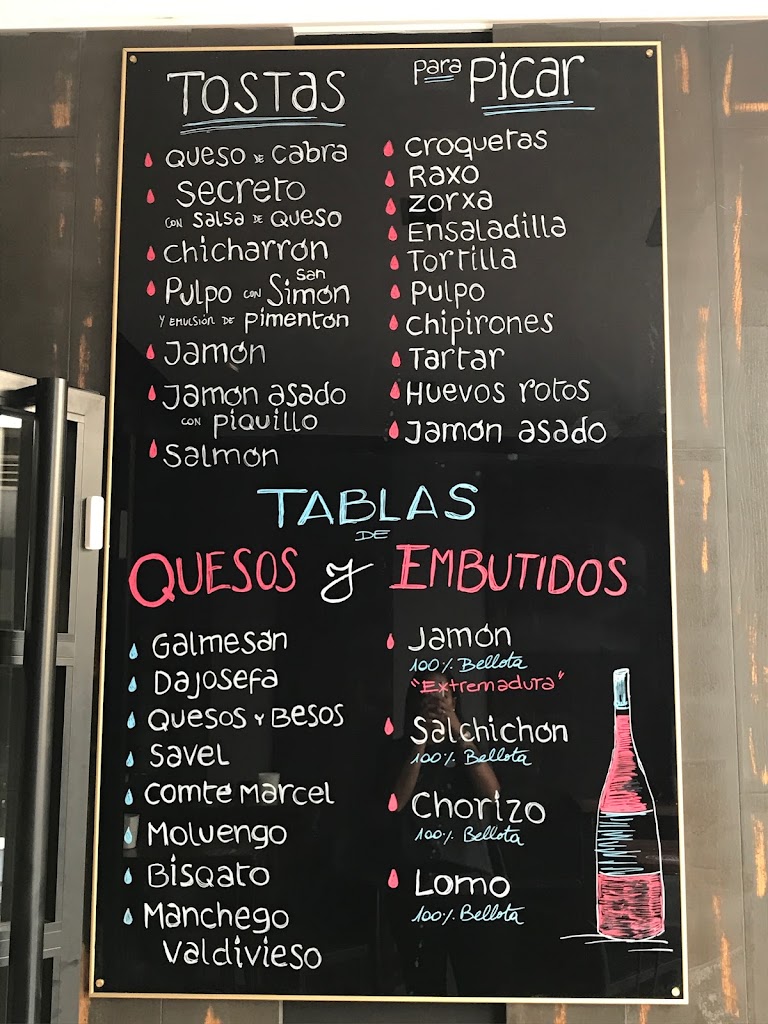 Tostas
Queso de cabra
Secreto
con salsa de queso
Chicharrón
Pulpo con San Simón
y emulsión de pimentón
Jamón
Jamón asado
con piquillo
Salmón
para picar
Croquetas
Raxo
Zorxa
Ensaladilla
Tortilla
Pulpo
Chipirones
Tartar
Huevos rotos
Jamón asado
TABLAS
DE
QUESOS y EMBUTIDOS
Galmesán
Dajosefa
Quesos y Besos
Savel
Comté Marcel
Moluengo
Bisqato
Manchego
Valdivieso
Jamón
100% Bellota
"Extremadura"
Salchichón
100% Bellota
Chorizo
100% Bellota
Lomo
100% Bellota